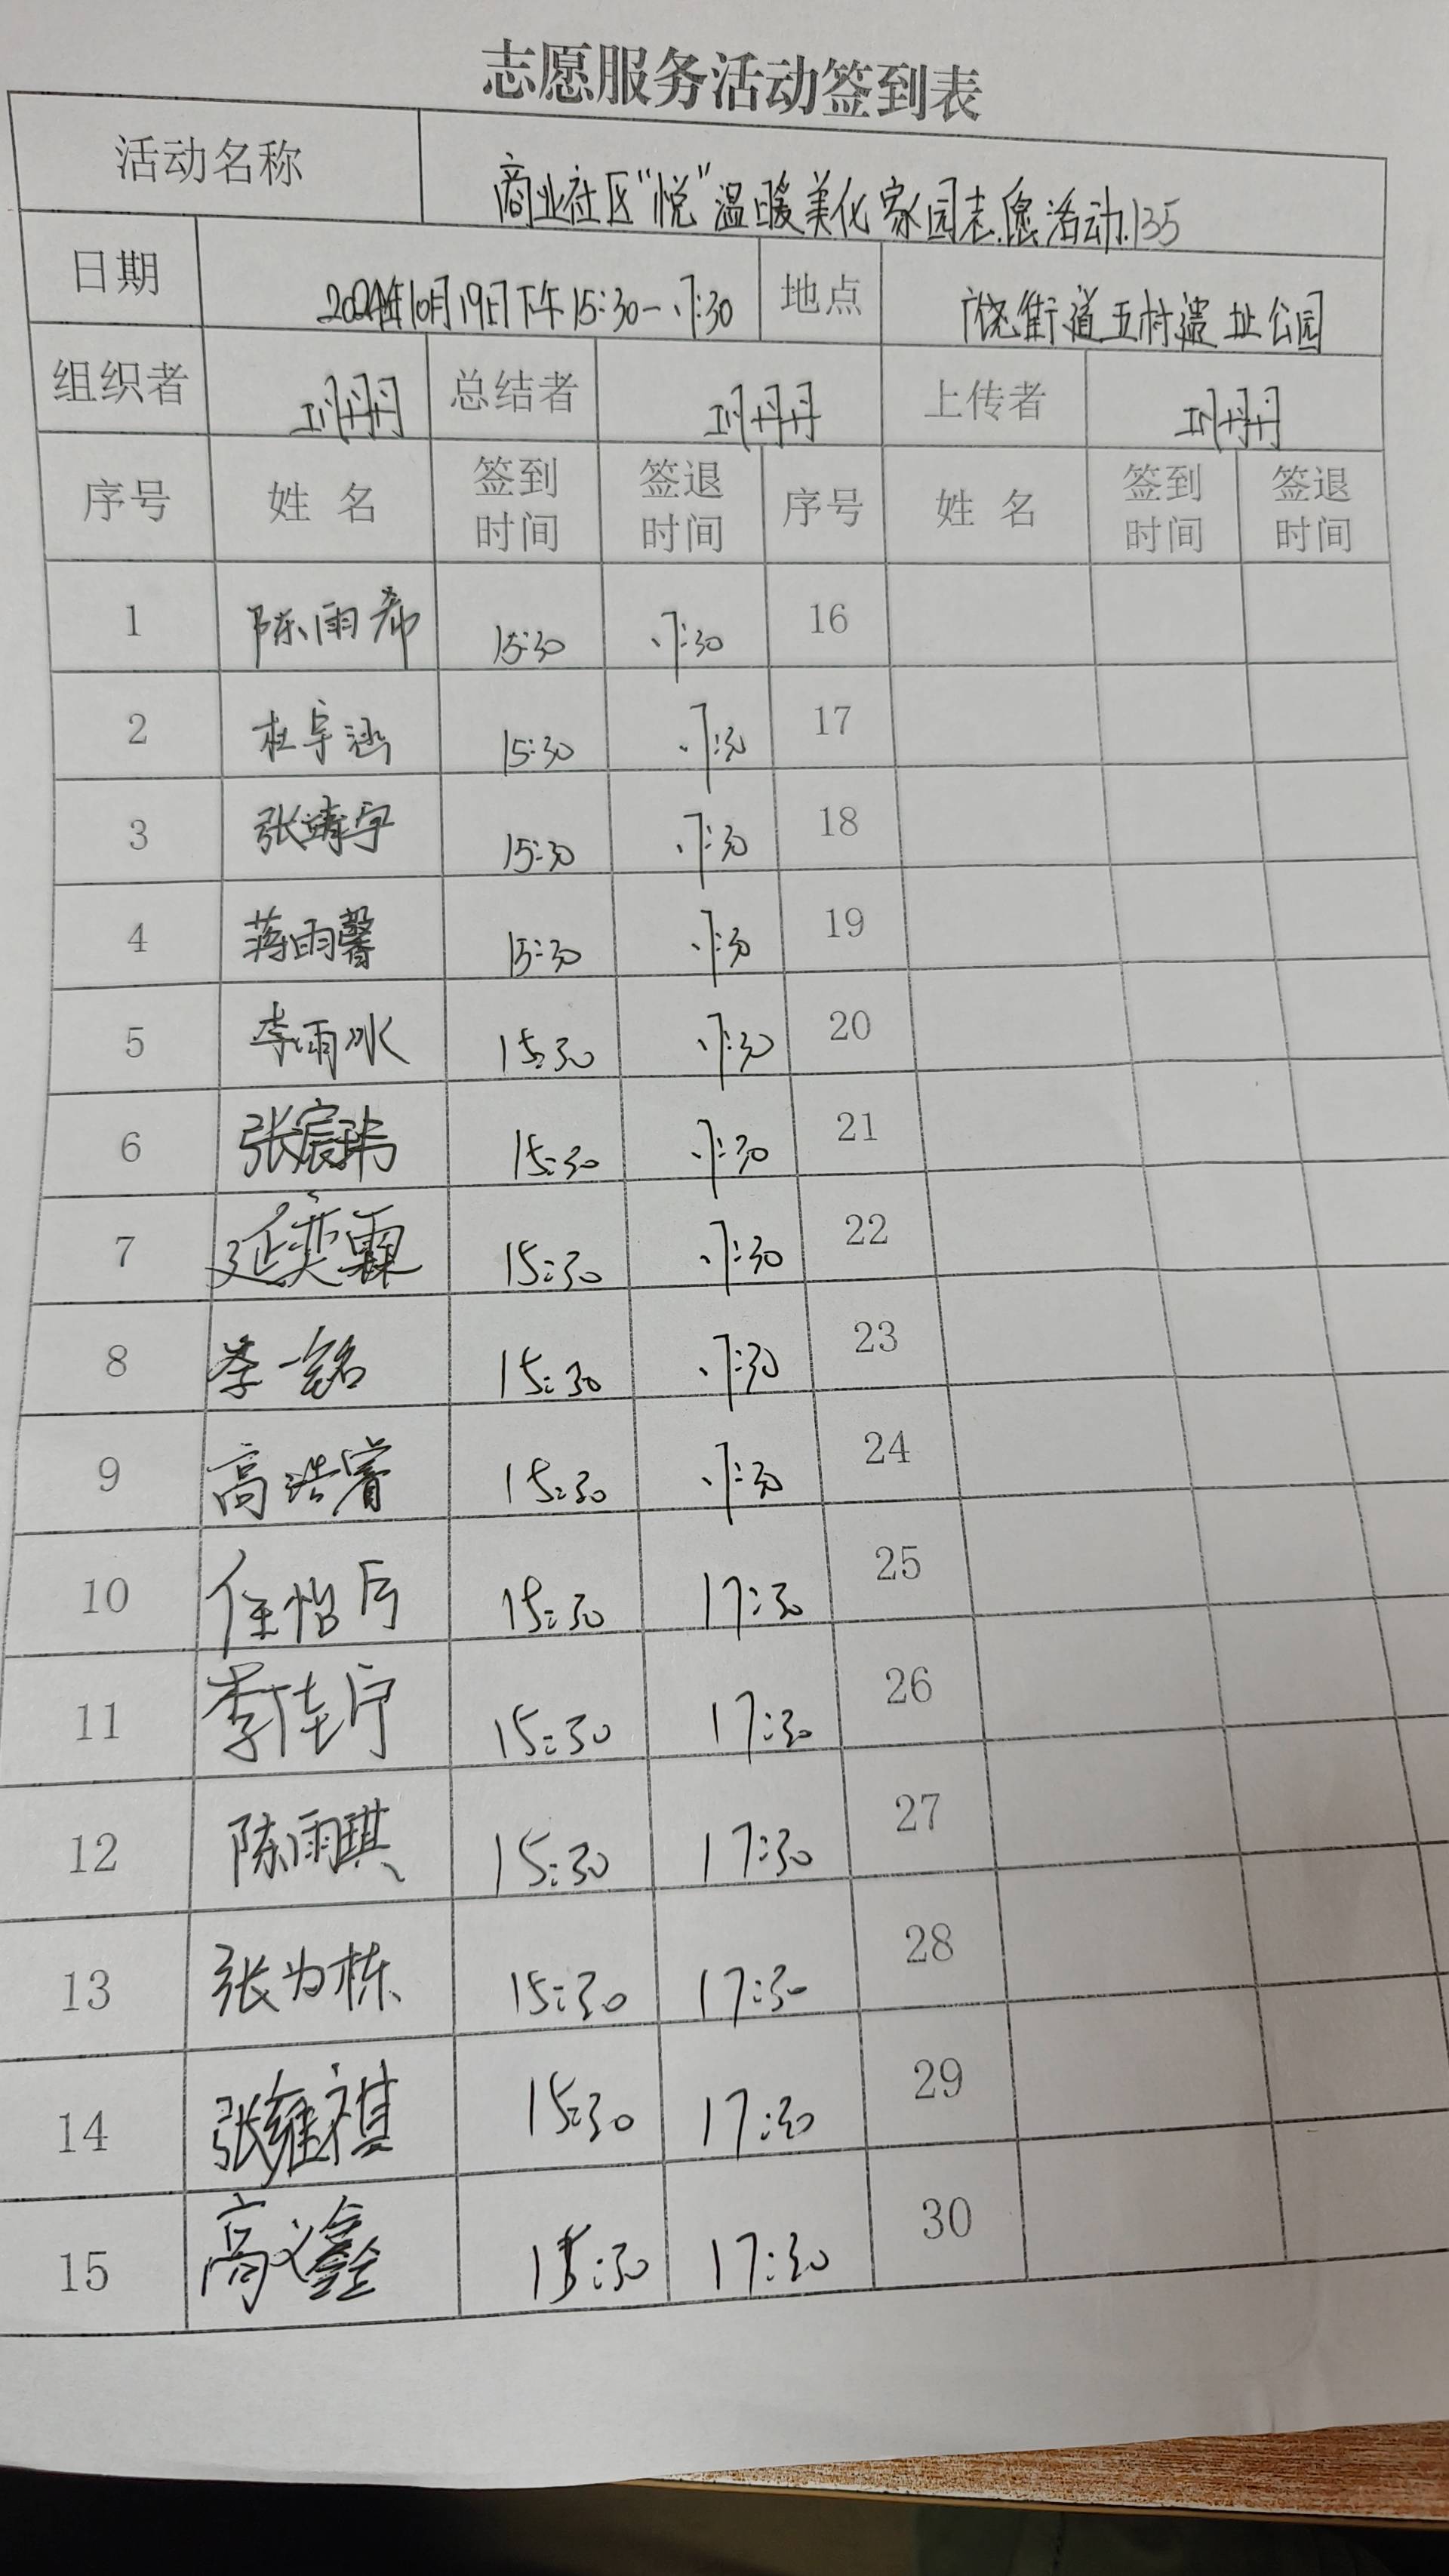 志愿服务活动签到表
活动名称 商业社区“悦”温暖美化家园志愿活动135
日期 2024年10月19日下午15:30-17:30 地点 饶街道五村遗址公园
组织者 丹丹 总结者 丹丹 上传者 丹丹
序号 姓名 签到时间 签退时间 序号 姓名 签到时间 签退时间
1 陈雨希 15:30 17:30 16
2 杜宇涵 15:30 17:30 17
3 张靖宇 15:30 17:30 18
4 蒋雨馨 15:30 17:30 19
5 李雨冰 15:30 17:30 20
6 张宸玮 15:30 17:30 21
7 延奕霖 15:30 17:30 22
8 李一铭 15:30 17:30 23
9 高浩睿 15:30 17:30 24
10 任怡 15:30 17:30 25
11 李佳宁 15:30 17:30 26
12 陈雨琪 15:30 17:30 27
13 张为栋 15:30 17:30 28
14 张雍祺 15:30 17:30 29
15 高义鑫 15:30 17:30 30